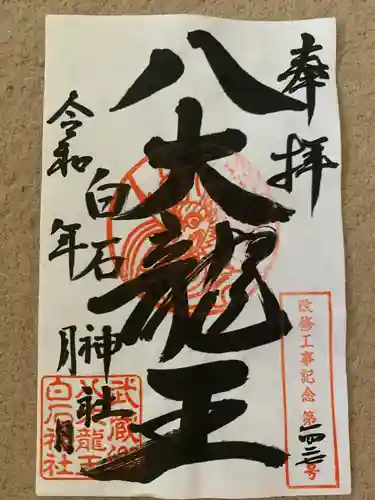 奉拝
改修工事記念 第一四三号
八大龍王
白石神社
令和 年 月 日
武蔵國
八大龍王
白石神社